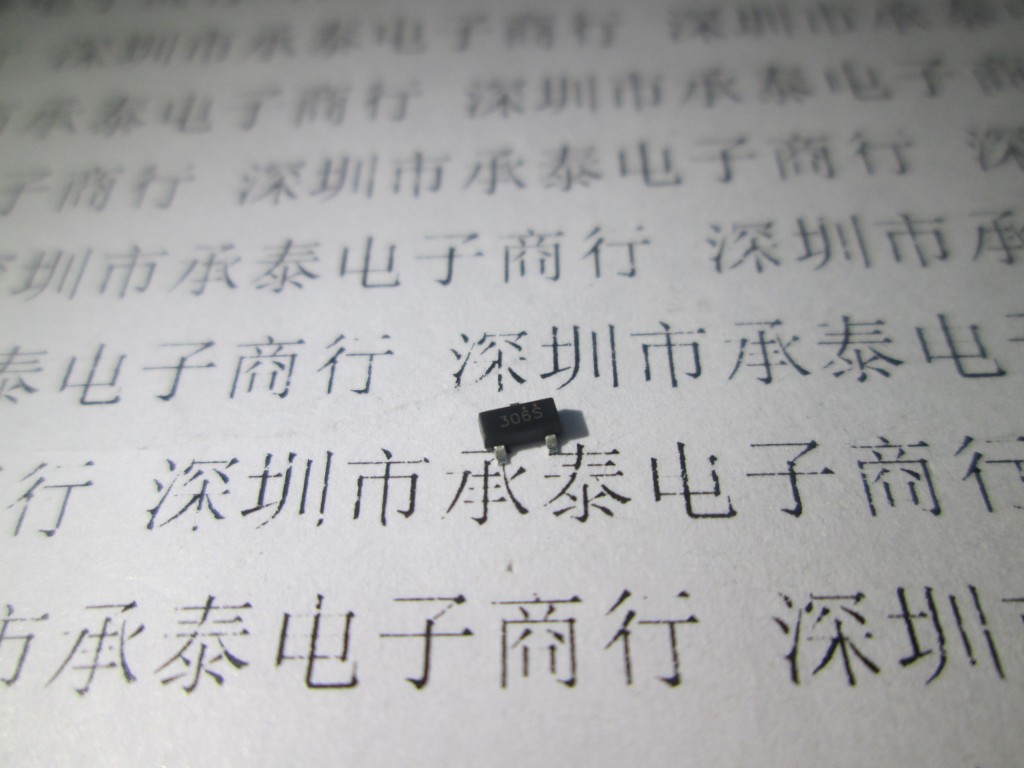 深圳市承泰电子商行 深圳市承泰
承泰电子商行 深圳市承泰电子商
子商行 深圳市承泰电子商行 深
圳市承泰电子商行 深圳市承
泰电子商行 深圳市承泰电子
306S
行 深圳市承泰电子商行
市承泰电子商行 深圳市